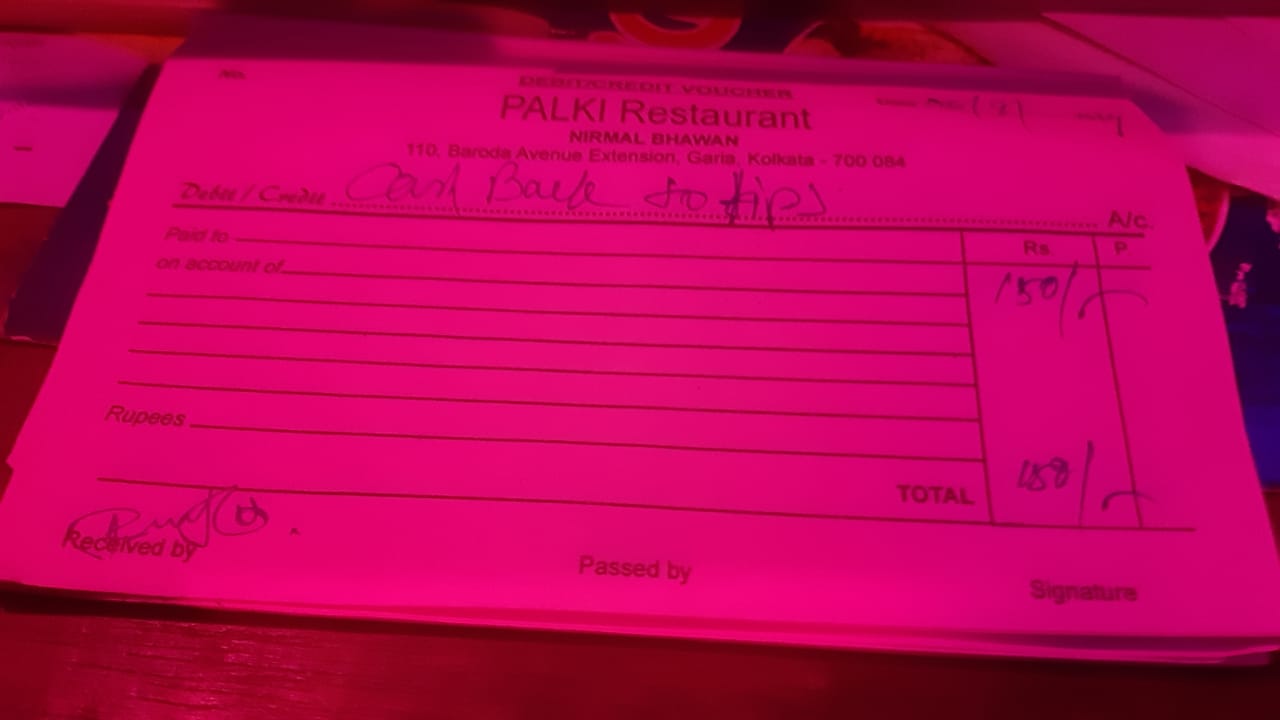 No.
DEBIT/CREDIT VOUCHER
PALKI Restaurant
NIRMAL BHAWAN
110, Baroda Avenue Extension, Garia, Kolkata - 700 084
Debit / Credit Cash Back to tips A/c.
Paid to Rs. P.
on account of 150/-
Rupees
TOTAL 150/-
Received by
Passed by
Signature